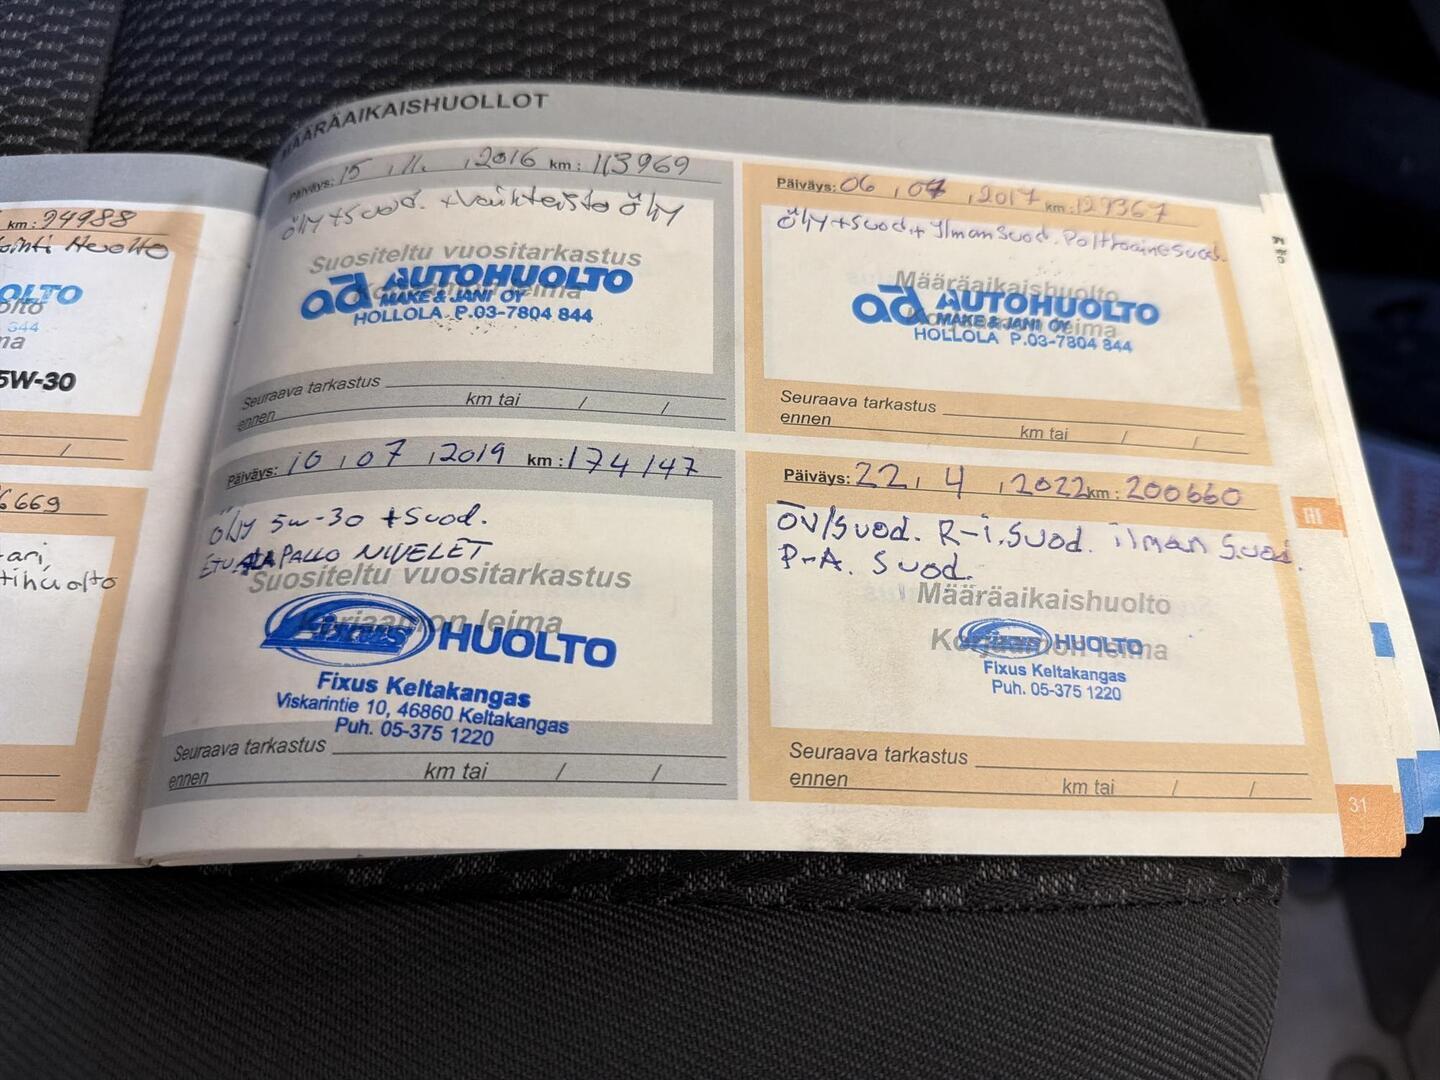 km: 94988
Huolto
OLTO
olto
844
ma
5W-30
6669
ari,
tihuolto
MÄÄRÄAIKAISHUOLLOT
Päiväys: 15 . 11. , 2016 km: 113969
Öljy + Suod. + Vaihteisto öljy
Suositeltu vuositarkastus
Korjaamon leima
ad AUTOHUOLTO
MAKE & JANI OY
HOLLOLA P.03-7804 844
Seuraava tarkastus
ennen km tai / /
Päiväys: 06 , 07 , 2017 km: 129367
Öljy + Suod. + Ilman Suod. Polttoaine Suod.
Määräaikaishuolto
Korjaamon leima
ad AUTOHUOLTO
MAKE & JANI OY
HOLLOLA P.03-7804 844
Seuraava tarkastus
ennen km tai / /
Päiväys: 10 , 07 , 2019 km: 174147
öljy 5w-30 + Suod.
ETU ALA PALLO NIVELET
Suositeltu vuositarkastus
Korjaamon leima
Fixus HUOLTO
Fixus Keltakangas
Viskarintie 10, 46860 Keltakangas
Puh. 05-375 1220
Seuraava tarkastus
ennen km tai / /
Päiväys: 22, 4 , 2022 km: 200660
ÖV/Suod. R-i. Suod. ilman Suod.
P-A. Suod.
Määräaikaishuolto
Korjaamon leima
Fixus HUOLTO
Fixus Keltakangas
Puh. 05-375 1220
Seuraava tarkastus
ennen km tai / /
31